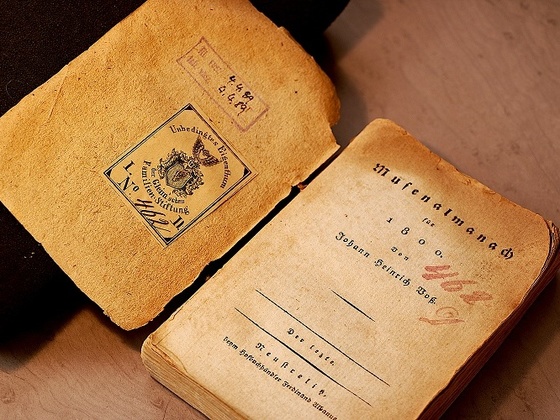 4.4.89
4.4.89
Unbedingtes Eigenthum
der Gleim'schen
Familien-Stiftung
L
No 462
II
Muſenalmanach
für
1800.
von
Johann Heinrich Voß.
462
Der letzte.
Neuſtrelitz,
beym Hofbuchhändler Ferdinand Albanus